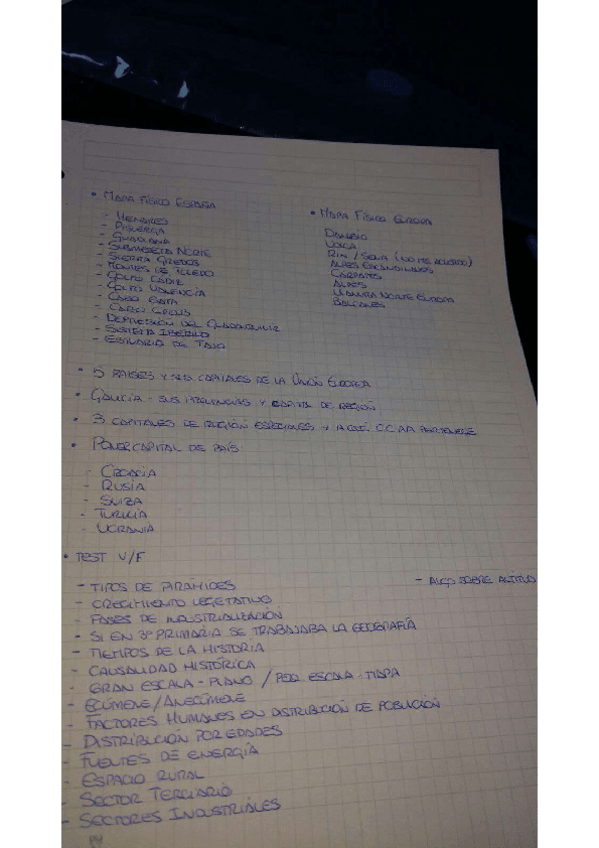 • MAPA FÍSICO ESPAÑA
- HENARES
- PISUERGA
- GUADIANA
- SUBMESETA NORTE
- SIERRA GREDOS
- MONTES DE TOLEDO
- GOLFO CADIZ
- GOLFO VALENCIA
- CABO GATA
- CABO CREUS
- DEPRESIÓN DEL GUADALQUIVIR
- SISTEMA IBÉRICO
- ESTUARIO DE TAJO
• MAPA FÍSICO EUROPA
DANUBIO
VOLGA
RIN / SENA (NO ME ACUERDO)
ALPES ESCANDINAVOS
CÁRPATOS
ALPES
LLANURA NORTE EUROPA
BALCANES
• 5 PAISES Y SUS CAPITALES DE LA UNIÓN EUROPEA
• GALICIA - SUS PROVINCIAS Y CAPITAL DE REGIÓN
• 3 CAPITALES DE REGIÓN ESPAÑOLES Y A QUÉ CC.AA PERTENECE
• PONER CAPITAL DE PAÍS
- CROACIA
- RUSIA
- SUIZA
- TURKIA
- UCRANIA
• TEST V/F
- TIPOS DE PIRÁMIDES
- ALGO SOBRE ALTITUD
- CRECIMIENTO VEGETATIVO
- FASES DE INDUSTRIALIZACIÓN
• SI EN 3º PRIMARIA SE TRABAJABA LA GEOGRAFÍA
- TIEMPOS DE LA HISTORIA
- CAUSALIDAD HISTÓRICA
- GRAN ESCALA - PLANO / PEQ. ESCALA - MAPA
- ECÚMENE / ANECÚMENE
- FACTORES HUMANOS EN DISTRIBUCIÓN DE POBLACIÓN
- DISTRIBUCIÓN POR EDADES
- FUENTES DE ENERGÍA
- ESPACIO RURAL
- SECTOR TERCIARIO
- SECTORES INDUSTRIALES